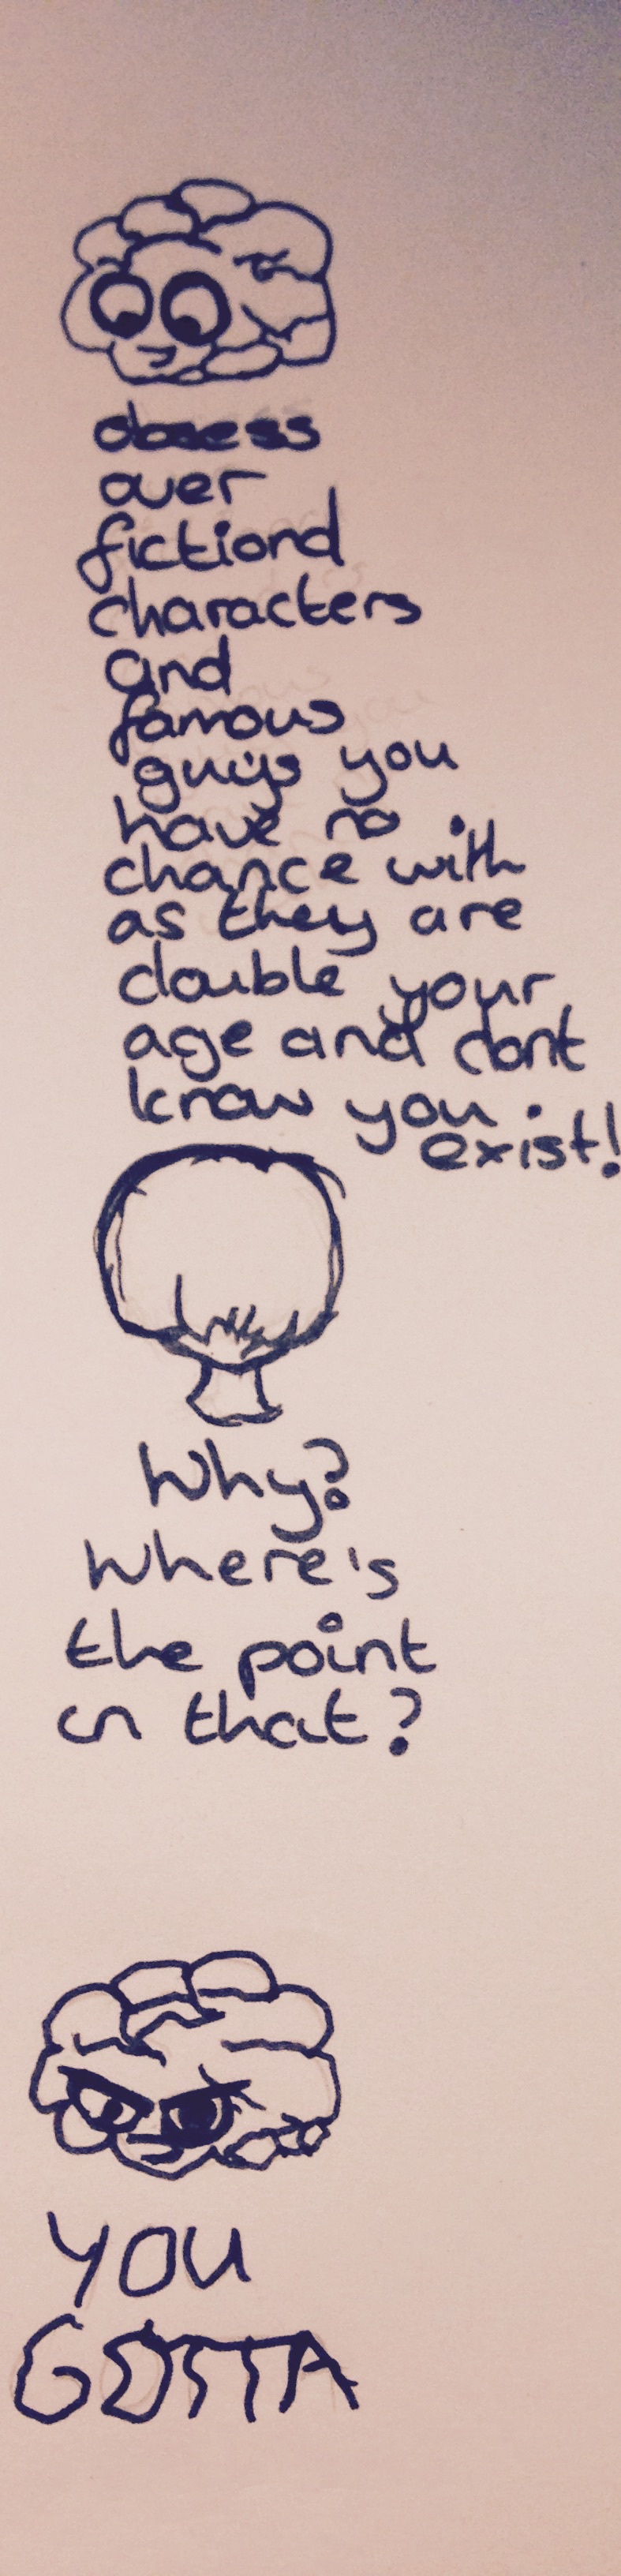 obsess
over
fictional
characters
and
famous
guys you
have no
chance with
as they are
double your
age and dont
know you
exist!
Why?
Where's
the point
in that?
YOU
GOTTA